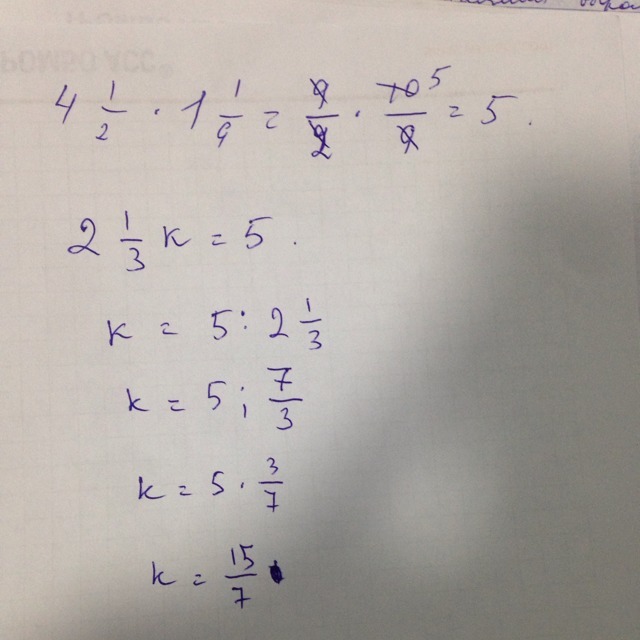 4 1/2 · 1 1/9 = 9/2 · 10/9 5 = 5.
2 1/3 k = 5.
k = 5 : 2 1/3
k = 5 : 7/3
k = 5 · 3/7
k = 15/7